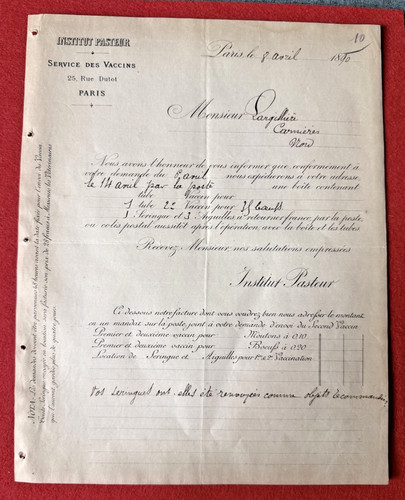 10
INSTITUT PASTEUR
SERVICE DES VACCINS
25, Rue Dutot
PARIS
Paris, le 8 avril 1890
Monsieur
Carnières
Nord
Nous avons l'honneur de vous informer que, conformément à
votre demande du avril nous expédierons à votre adresse,
le 14 avril par la poste une boîte contenant
tube Vaccin pour
1 tube 22 Vaccin pour 25 bœufs
1 Seringue et 3 Aiguilles à retourner franco, par la poste
ou colis postal aussitôt après l'opération, avec la boîte et les tubes.
Recevez, Monsieur, nos salutations empressées
Institut Pasteur
Ci dessous notre facture dont vous voudrez bien nous adresser le montant
en un mandat sur la poste, joint à votre demande d'envoi du Second Vaccin
Premier et deuxième vaccin pour Moutons à 0,10
Premier et deuxième vaccin pour Bœufs à 0,20
Location de Seringue et Aiguilles pour 1re et 2e Vaccination
Vos seringues ont elles été renvoyées comme objets recommandés